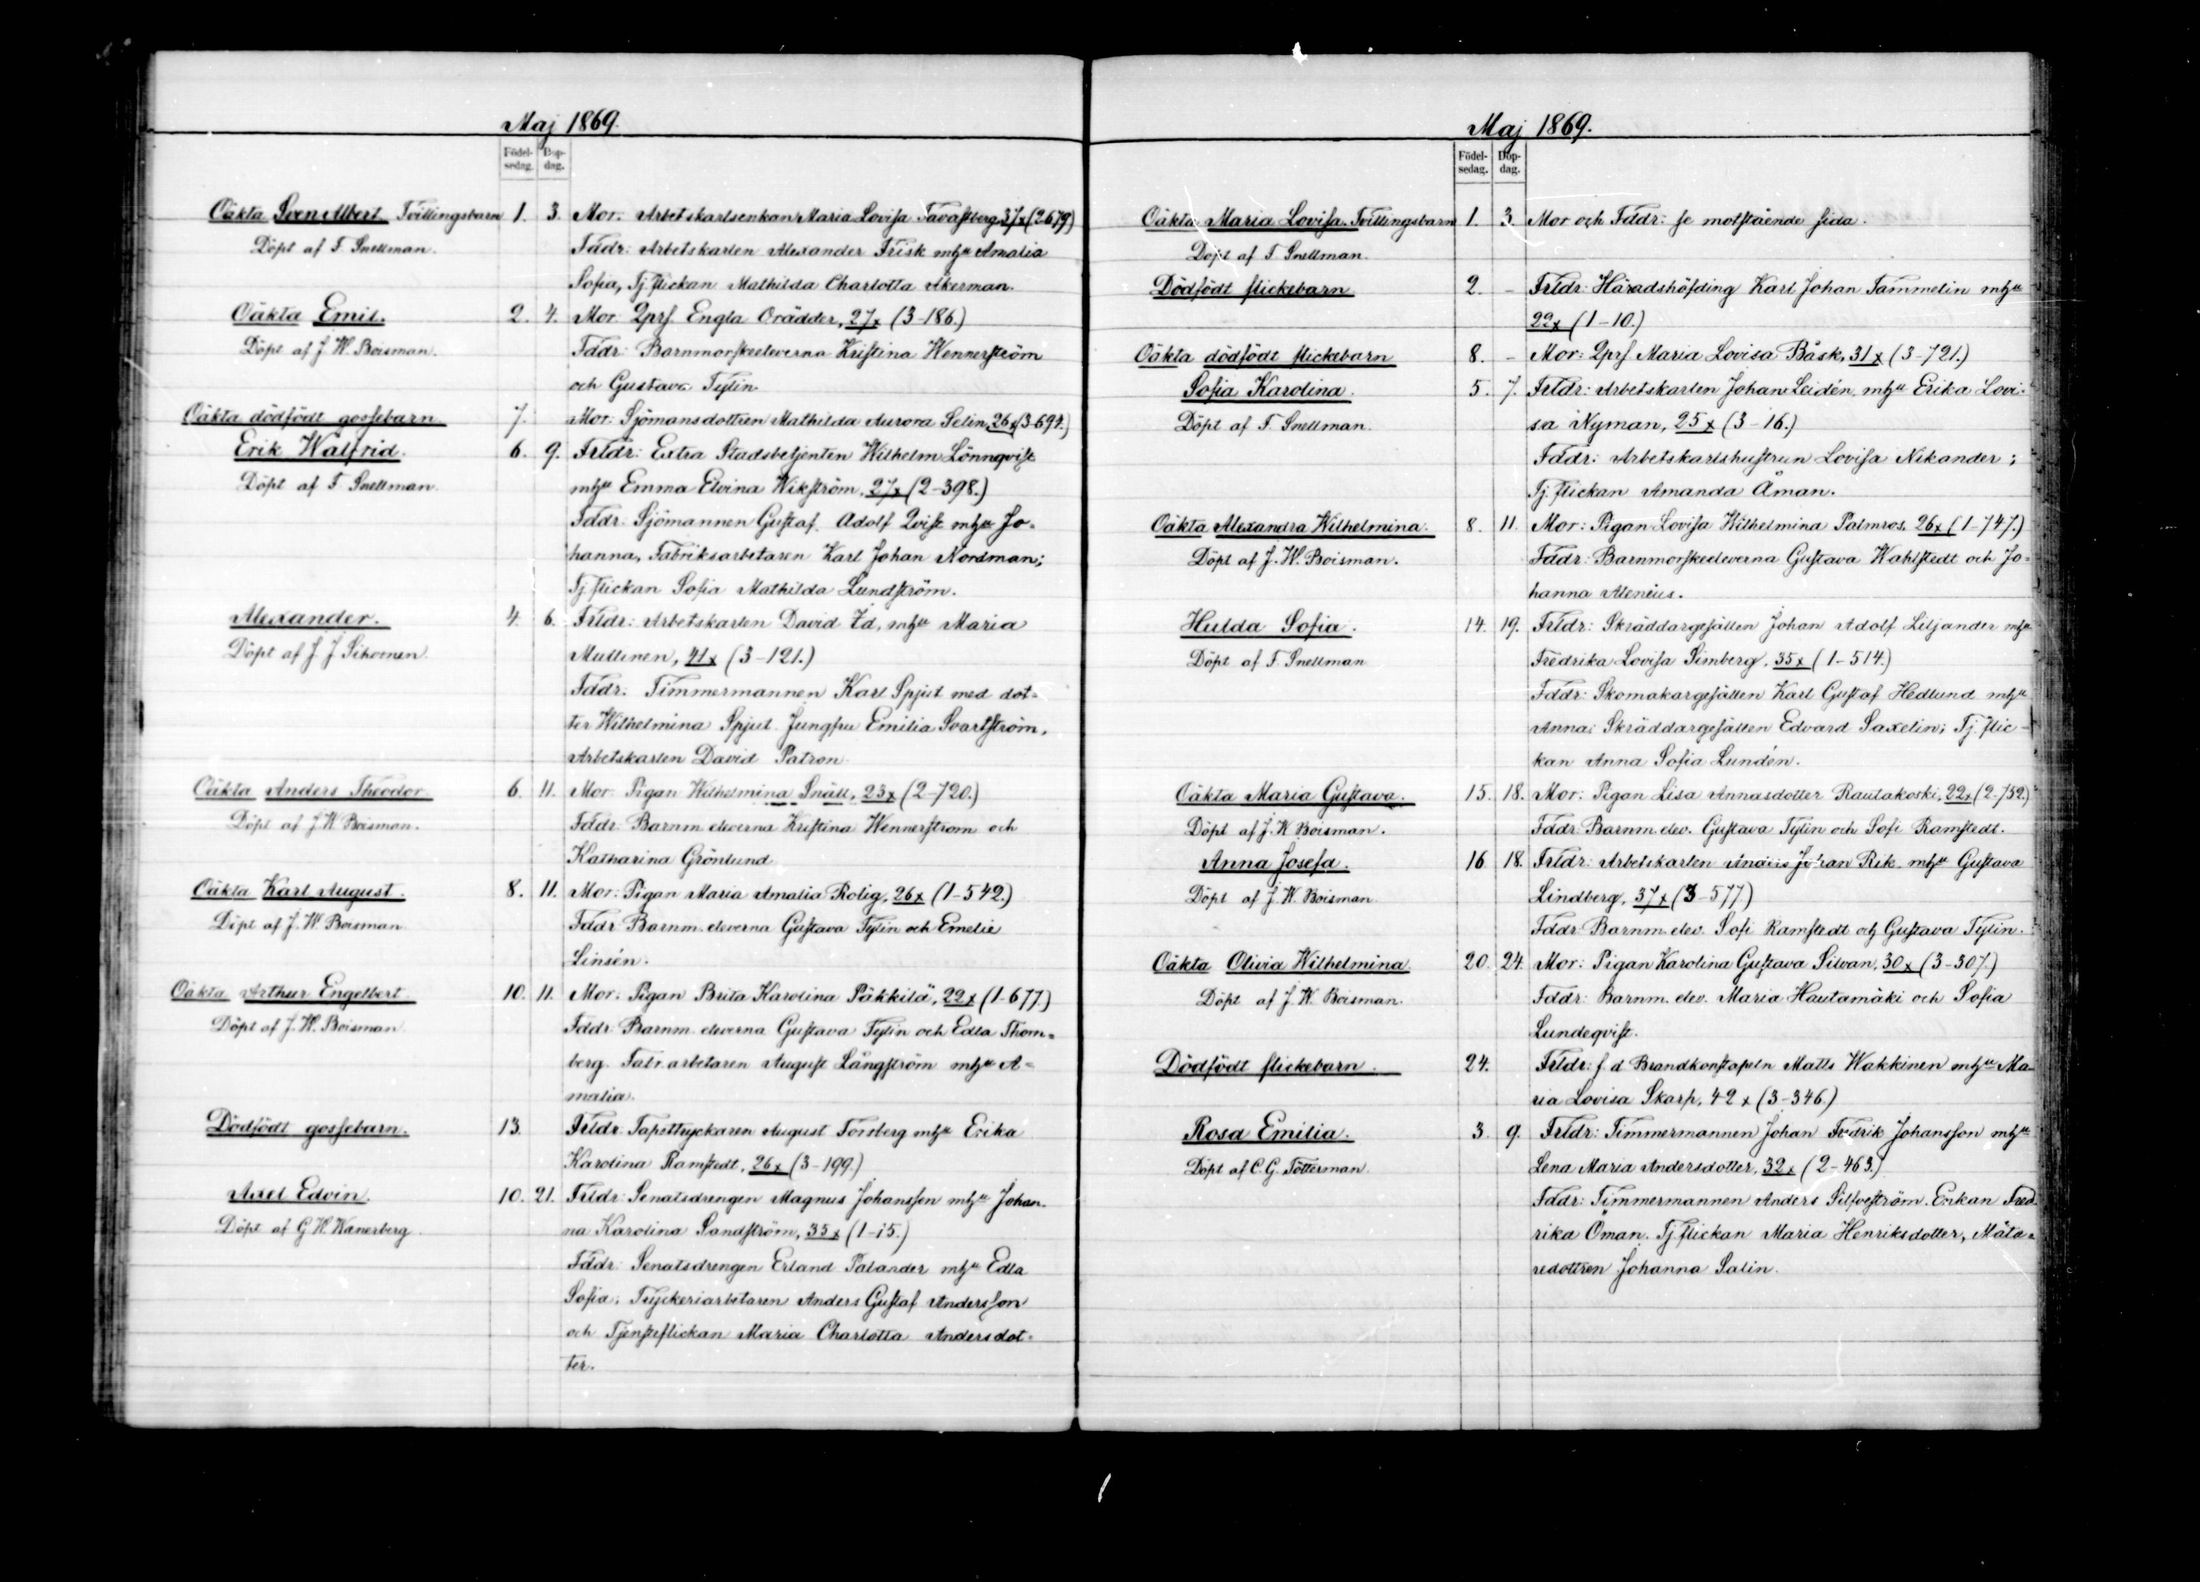 Maj 1869.
Födel-
sedag.
Döp-
dag.
Oäkta Sven Albert Tvillingsbarn 1. 3. Mor: Arbetskarlsenkan Maria Lovisa Tavastberg 37x (2679)
Döpt af F. Snellman. Fddr: Arbetskarlen Alexander Frisk mhu Amalia
Sofia, Tj. flickan Mathilda Charlotta Åkerman.
Oäkta Emil. 2. 4. Mor: Qprs. Engla Orädder, 27x (3-186.)
Döpt af J. W. Boisman. Fddr: Barnmorskeeleverna Kristina Wennerström
och Gustava Tylin.
Oäkta dödfödt gossebarn 7. Mor: Sjömansdottren Mathilda Aurora Selin, 26x (3-694.)
Erik Walfrid. 6. 9. Frldr: Extra Stadsbetjenten Wilhelm Lönnqvist
Döpt af F. Snellman. mhu Emma Elvina Wikström, 27x (2-398.)
Fddr: Sjömannen Gustaf Adolf Qvist mhu Jo-
hanna, Fabriksarbetaren Karl Johan Nordman;
Tj. flickan Sofia Mathilda Lundström.
Alexander. 4. 6. Frldr: Arbetskarlen David Id, mhu Maria
Döpt af J. J. Sihvonen. Mullinen, 41x (3-121.)
Fddr: Timmermannen Karl Spjut med dot-
ter Wilhelmina Spjut. Jungfru Emilia Svartström,
Arbetskarlen David Patron.
Oäkta Anders Theodor. 6. 11. Mor: Pigan Wilhelmina Snäll, 23x (2-720.)
Döpt af J. W. Boisman. Fddr: Barnm. eleverna Kristina Wennerström och
Katharina Grönlund
Oäkta Karl August. 8. 11. Mor: Pigan Maria Amalia Rolig, 26x (1-542.)
Döpt af J. W. Boisman. Fddr: Barnm. eleverna Gustava Tylin och Emelie
Linsén.
Oäkta Arthur Engelbert 10. 11. Mor: Pigan Brita Karolina Päkkilä, 22x (1-677.)
Döpt af J. W. Boisman Fddr: Barnm. eleverna Gustava Tylin och Edla Thom-
berg. Fabr. arbetaren August Långström mhu A-
malia.
Dödfödt gossebarn. 13. Frldr: Tapettryckaren August Forsberg mhu Erika
Karolina Ramstedt, 26x (3-199.)
Axel Edvin. 10. 21. Frldr: Senatsdrengen Magnus Johansson mhu Johan-
Döpt af G. W. Wanerberg. na Karolina Sandström, 35x (1-15.)
Fddr: Senatsdrengen Erland Talander mhu Edla
Sofia; Tryckeriarbetaren Anders Gustaf Andersson
och Tjensteflickan Maria Charlotta Andersdot-
ter.
Maj 1869.
Födel-
sedag.
Döp-
dag.
Oäkta Maria Lovisa. Tvillingsbarn 1. 3. Mor och Fddr: se motstående sida.
Döpt af F. Snellman.
Dödfödt flickebarn 2. - Frldr: Häradshöfding Karl Johan Tammelin mhu
22x (1-10.)
Oäkta dödfödt flickebarn 8. - Mor: Qprs. Maria Lovisa Båsk, 31x (3-721.)
Sofia Karolina. 5. 7. Frldr: Arbetskarlen Johan Leidén, mhu Erika Lovi-
Döpt af F. Snellman. sa Nyman, 25x (3-16.)
Fddr: Arbetskarlshustrun Lovisa Nikander;
Tj. flickan Amanda Åman.
Oäkta Alexandra Wilhelmina. 8. 11. Mor: Pigan Lovisa Wilhelmina Palmros, 26x (1-747.)
Döpt af J. W. Boisman. Fddr: Barnmorskeeleverna Gustava Wahlstedt och Jo-
hanna Alenius.
Hulda Sofia. 14. 19. Frldr: Skräddargesällen Johan Adolf Liljander mhu
Döpt af F. Snellman Fredrika Lovisa Simberg, 35x (1-514.)
Fddr: Skomakargesällen Karl Gustaf Hedlund mhu
Anna; Skräddargesällen Edvard Saxelin; Tj. flic-
kan Anna Sofia Lundén.
Oäkta Maria Gustava. 15. 18. Mor: Pigan Lisa Annasdotter Rautakoski, 22x (2-752.)
Döpt af J. W. Boisman. Fddr: Barnm. elev. Gustava Tylin och Sofi Ramstedt.
Anna Josefa. 16 18. Frldr: Arbetskarlen Anders Johan Rik mhu Gustava
Döpt af J. W. Boisman Lindberg, 37x (3-577.)
Fddr: Barnm. elev. Sofi Ramstedt och Gustava Tylin.
Oäkta Olivia Wilhelmina. 20. 24. Mor: Pigan Karolina Gustava Silvan, 30x (3-307.)
Döpt af J. W. Boisman. Fddr: Barnm. elev. Maria Hautamäki och Sofia
Lundeqvist.
Dödfödt flickebarn. 24. Frldr: f. d. Brandkonstapeln Matts Wakkinen mhu Ma-
ria Lovisa Skarp, 42x (3-346.)
Rosa Emilia. 3. 9. Frldr: Timmermannen Johan Fredrik Johansson mhu
Döpt af C. G. Tötterman. Lena Maria Andersdotter, 32x (2-463.)
Fddr: Timmermannen Anders Silfverström. Enkan Fred-
rika Öman. Tj. flickan Maria Henriksdotter, Måla-
redottren Johanna Salin.